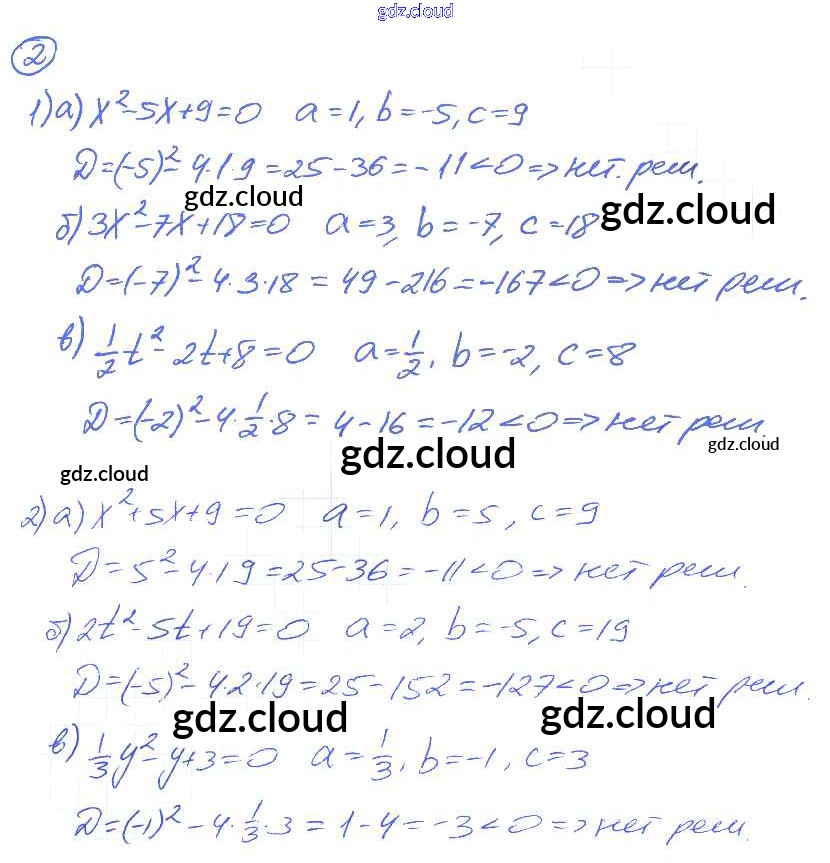 gdz.cloud
2
1) а) x²-5x+9=0 a=1, b=-5, c=9
D=(-5)²-4·1·9=25-36=-11<0=>нет. реш.
gdz.cloud
gdz.cloud
б) 3x²-7x+18=0 a=3, b=-7, c=18
D=(-7)²-4·3·18=49-216=-167<0=>нет реш.
в) 1/2 t²-2t+8=0 a=1/2, b=-2, c=8
D=(-2)²-4·1/2·8=4-16=-12<0=>нет реш.
gdz.cloud
gdz.cloud
gdz.cloud
2) а) x²+5x+9=0 a=1, b=5, c=9
D=5²-4·1·9=25-36=-11<0=>нет реш.
б) 2t²-5t+19=0 a=2, b=-5, c=19
D=(-5)²-4·2·19=25-152=-127<0=>нет реш.
gdz.cloud
gdz.cloud
в) 1/3 y²-y+3=0 a=1/3, b=-1, c=3
D=(-1)²-4·1/3·3=1-4=-3<0=>нет реш.